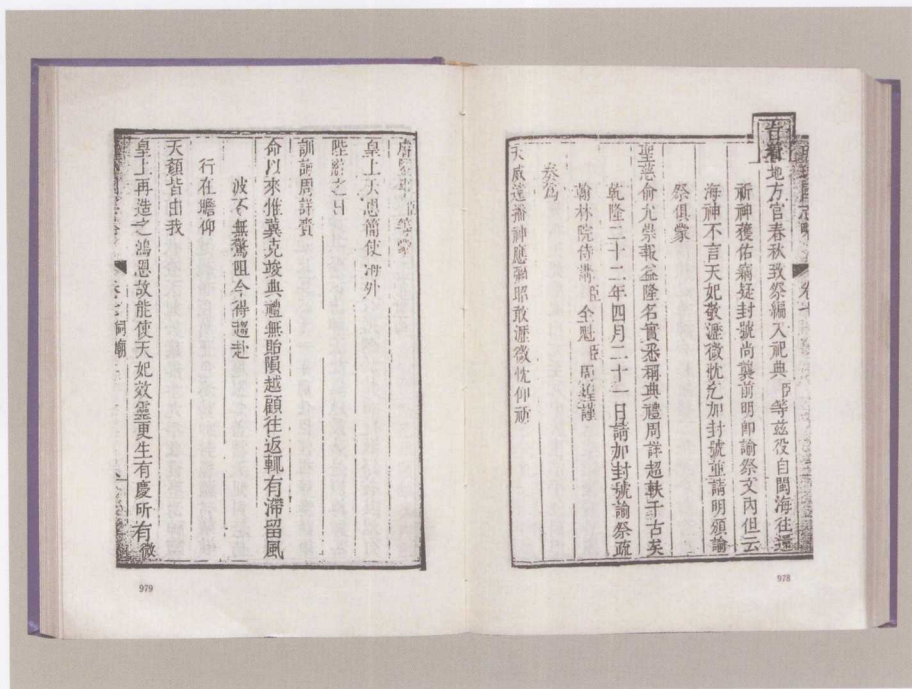 旨着地方官春秋致祭編入祀典臣等茲役自閩海往還
祈神獲佑竊疑封號尚襲前明即諭祭文內但云
海神不言天妃敬瀝微忱乞加封號並請明頒諭
祭俱蒙
聖慈俞允崇報益隆名實悉稱典禮周詳超軼于古矣
乾隆二十二年四月二十一日請加封號諭祭疏
翰林院侍講臣全魁臣周煌謹
奏為
天威遠播神應彌昭敢瀝微忱仰祈
978
皇上天恩簡使海外
陛辭之日
訓諭周詳賫
命以來惟冀克竣典禮無貽隕越顧往返輒有滯留風
波不無驚阻今得趨赴
行在瞻仰
天顏皆由我
皇上再造之鴻恩故能使天妃效靈更生有慶所有微
979